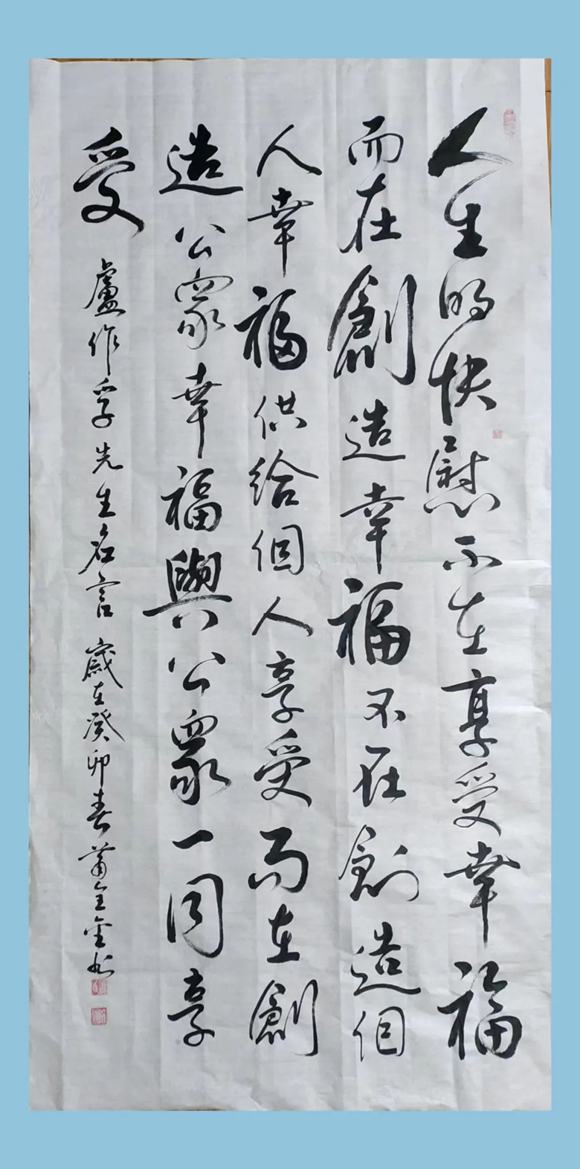 人生的快慰不在享受幸福
而在創造幸福不在創造個
人幸福供給個人享受而在創
造公眾幸福與公眾一同享
受
盧作孚先生名言歲在癸卯春蕭全金書